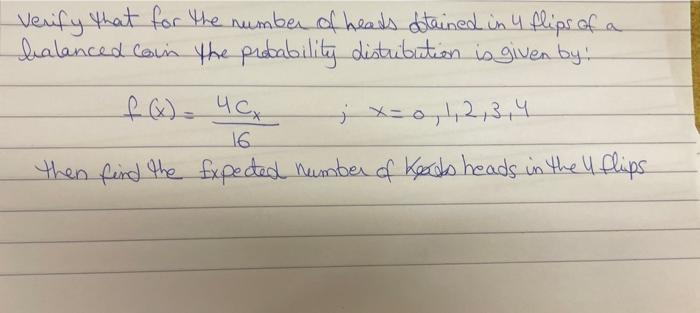 Verify that for the number of heads obtained in 4 flips of a
balanced coin the probability distribution is given by:
f(x) = 4Cx / 16 ; x = 0, 1, 2, 3, 4
then find the Expected number of heads in the 4 flips